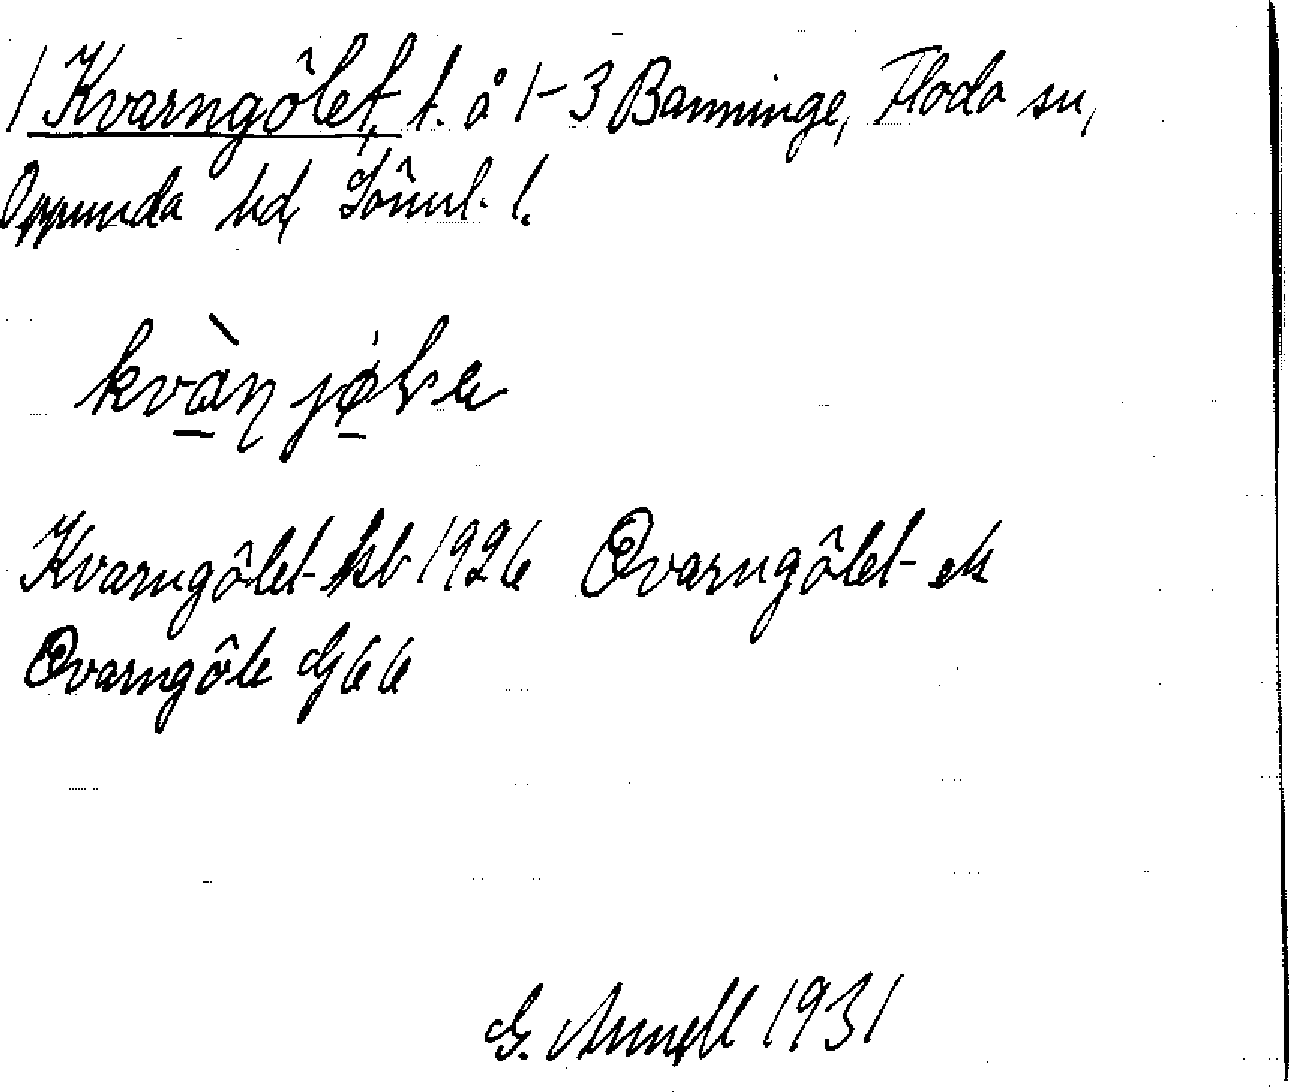 1 Kvarngölet, t. å 1-3 Banninge, Floda sn,
Oppunda hd, Sörml. l.
kvàn̠jø̠ḷe
Kvarngölet kb 1926 Qvarngölet ek
Qvarngöle G 66
G. Arnell 1931